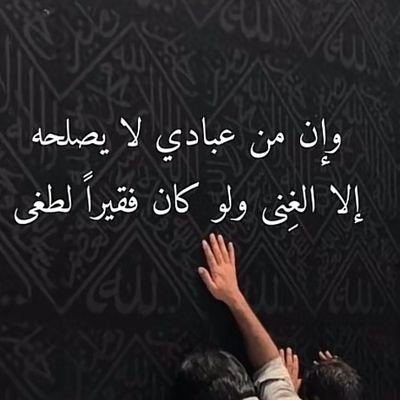 وإن من عبادي لا يصلحه
إلا الغِنى ولو كان فقيراً لطغى